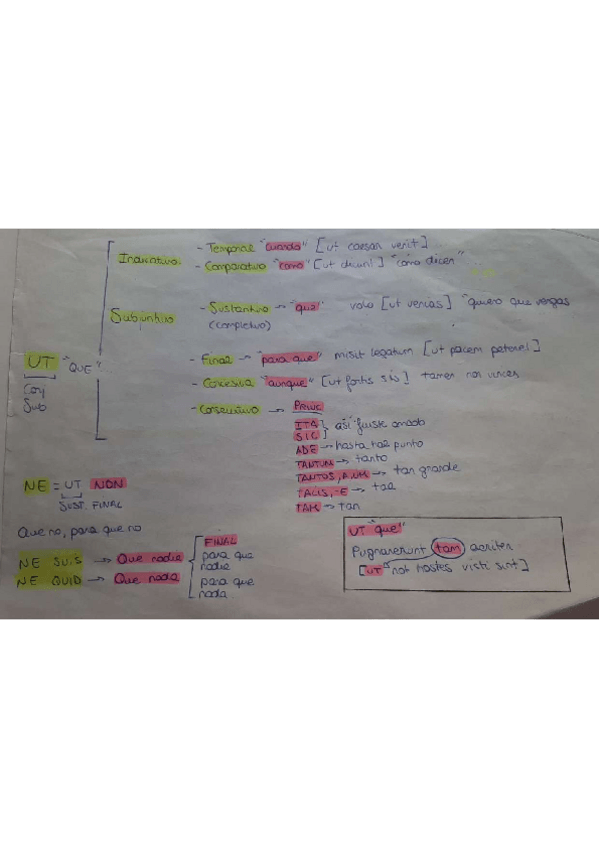 Indicativo:
- Temporal "cuando" [ut caesar venit]
- Comparativo "como" [ut dicunt] "cómo dicen"
Subjuntivo
- Sustantivo → "que" volo [ut venias] "quiero que vengas
(completivo)
UT "QUE"
Conj
Sub
- Final → "para que" misit legatum [ut pacem peteret]
- Concesiva "aunque" [ut fortis sis] tamen non vinces
- Consecutivo →
ITA
SIC } así fuiste amado
ADE → hasta tal punto
TANTUM → tanto
TANTUS, A, UM → tan grande
TALIS, -E → tal
TAM → tan
NE = UT NON
SUST. FINAL
Que no, para que no
NE SUIS → Que nadie
NE QUID → Que nada
FINAL
para que
nadie
para que
nada
UT "que"
Pugnaverunt tam acriter
[UT not hostes visti sint]